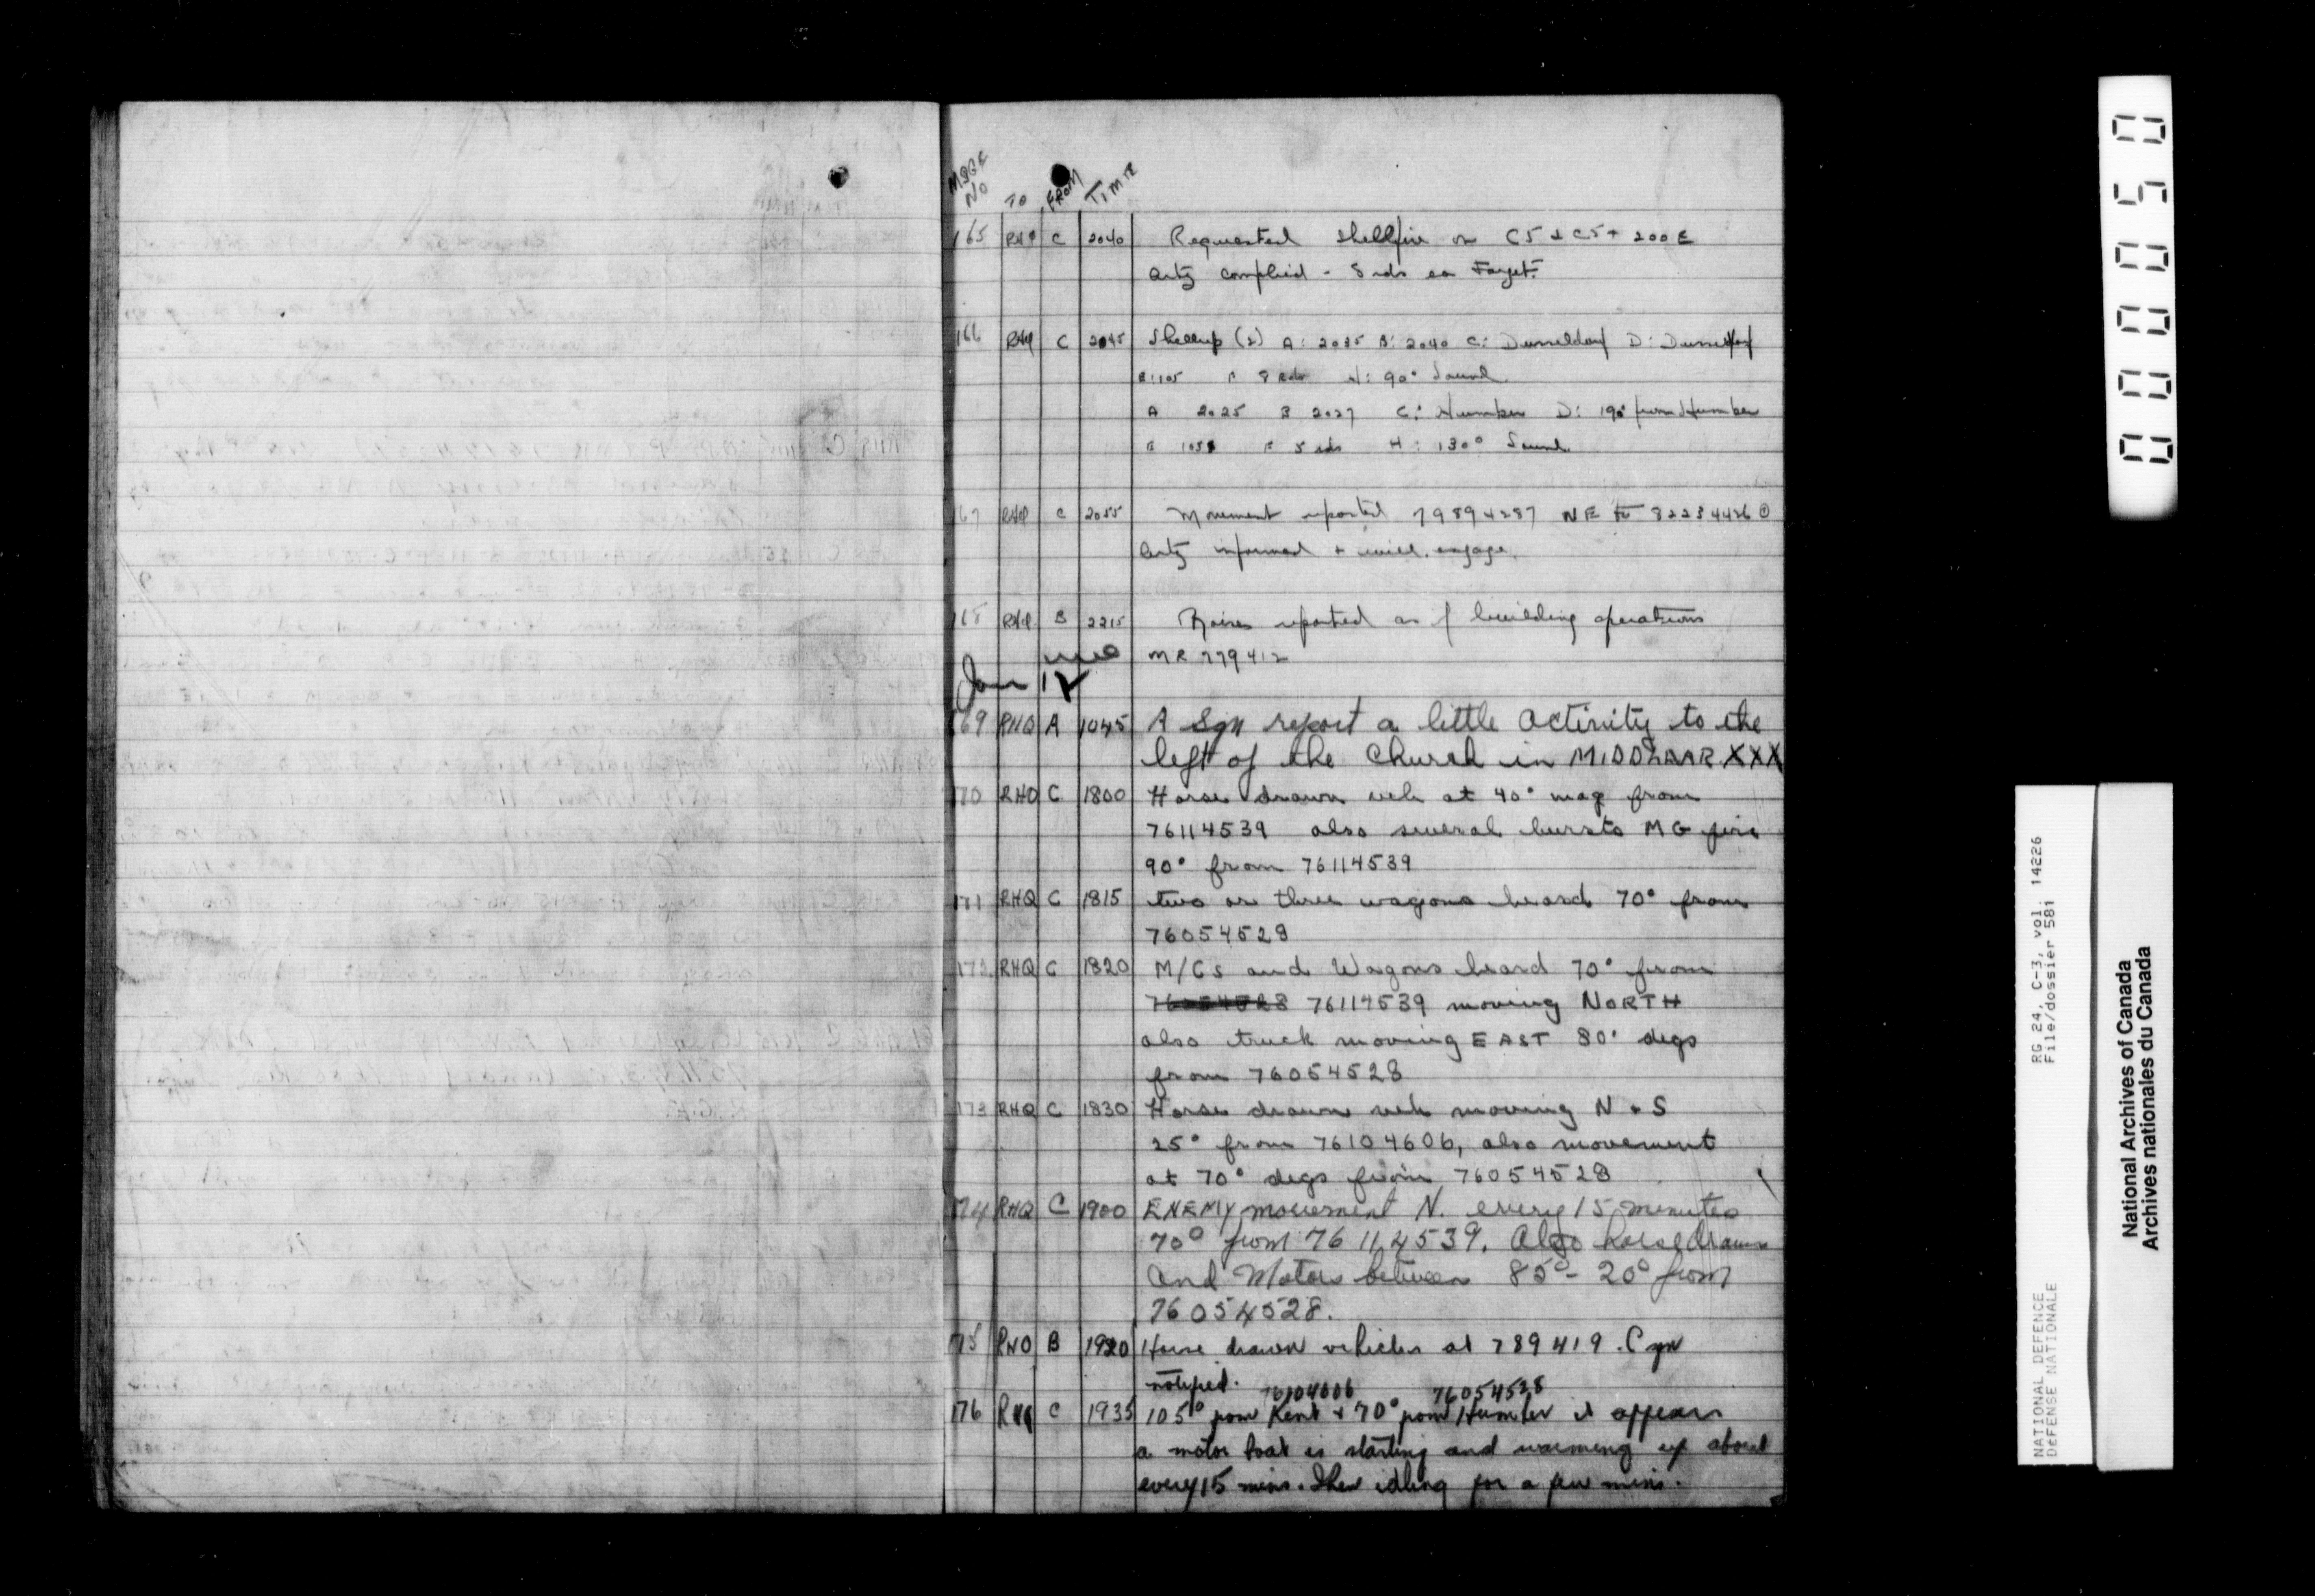 MSGE NO TO FROM TIME
165 RHQ C 2040 Requested shellfire on C5 & C5 + 200 E
Arty complied - 8 rds ea Target.
166 RHQ C 2045 Shellrep (2) A: 2035 B: 2040 C: Dusseldorf D: Dusseldorf
E: 105 F 8 rds H: 90° Sound
A 2025 B 2027 C: Humber D: 190° from Humber
E 105 F 5 rds H: 130° Sound.
167 RHQ C 2055 Movement reported 79894287 NE to 82234426
Arty informed + will engage.
168 RHQ B 2215 Noises reported as if building operations
MR 779412
Jan 12
169 RHQ A 1045 A Sqn report a little activity to the
left of the Church in MIDDLAAR XXX
170 RHQ C 1800 Horse drawn veh at 40° mag from
76114539 also several bursts MG fire
90° from 76114539
171 RHQ C 1815 two or three wagons heard 70° from
76054528
172 RHQ C 1820 M/Cs and Wagons heard 70° from
76054528 76114539 moving NORTH
also truck moving EAST 80° degs
from 76054528
173 RHQ C 1830 Horse drawn veh moving N & S
25° from 76104606, also movement
at 70° degs from 76054528
174 RHQ C 1900 ENEMY movement N. every 15 minutes
70° from 76114539. Also horse drawn
and Motors between 85° - 20° from
76054528.
175 RHQ B 1920 Horse drawn vehicles at 789419. C sqn
notified.
76104606 76054528
176 RHQ C 1935 105° from Kent & 70° from Humber it appears
a motor boat is starting and warming up about
every 15 mins. Then idling for a few mins.
000050
RG 24, C-3, vol. 14226
File/dossier 581
NATIONAL DEFENCE
DÉFENSE NATIONALE
National Archives of Canada
Archives nationales du Canada